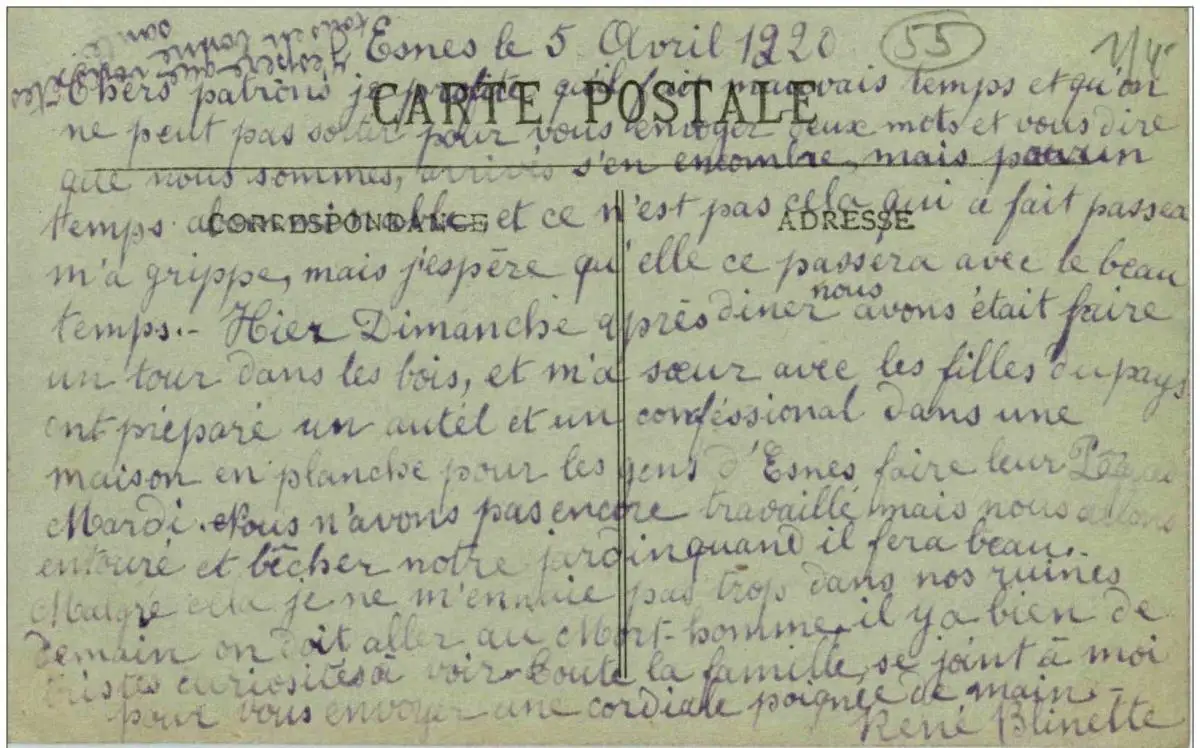 Esnes le 5 Avril 1920 55
J'espère que vous êtes
tous en bonne
santé
CARTE POSTALE
Chers patrons je profite qu'il fait mauvais temps et qu'on
ne peut pas sortir pour vous envoyer deux mots et vous dire
que nous sommes, arrivés s'en encombre, mais par un
temps abominable, et ce n'est pas cela qui a fait passer
CORRESPONDANCE
ADRESSE
m'a grippe, mais j'espère qu'elle ce passera avec le beau
temps.- Hier Dimanche après diner nous avons était faire
un tour dans les bois, et m'a sœur avec les filles du pays
ont préparé un autel et un conféssional dans une
maison en planche pour les gens d'Esnes faire leur
Mardi. Nous n'avons pas encore travaillé mais nous allons
entouré et bêcher notre jardin quand il fera beau.-
Malgré cela je ne m'ennuie pas trop dans nos ruines
demain on doit aller au Mort-homme, il y a bien de
tristes curiosités à voir- toute la famille, se joint à moi
pour vous envoyer une cordiale poignée de main.-
René Blinette